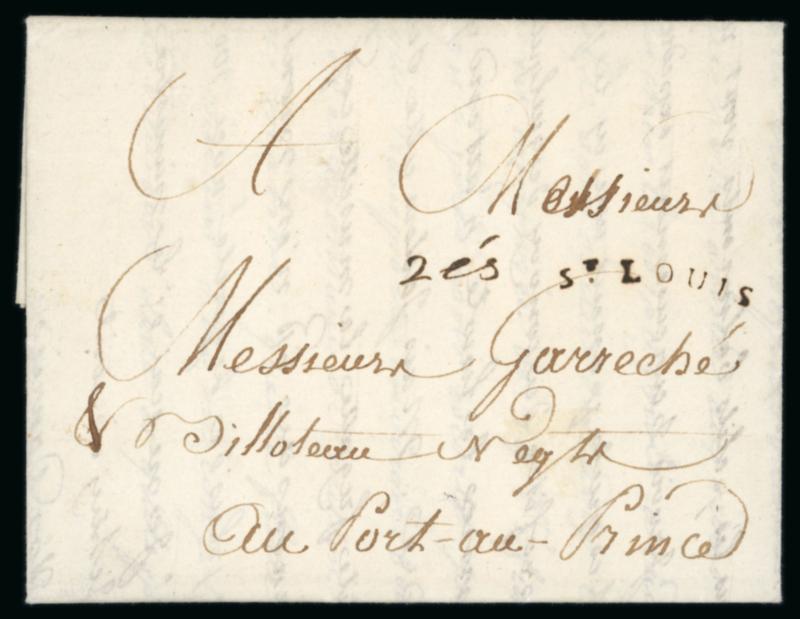 A Messieurs
2és ST LOUIS
Messieurs Garreché
& Billoteau Negts
au Port-au-Prince